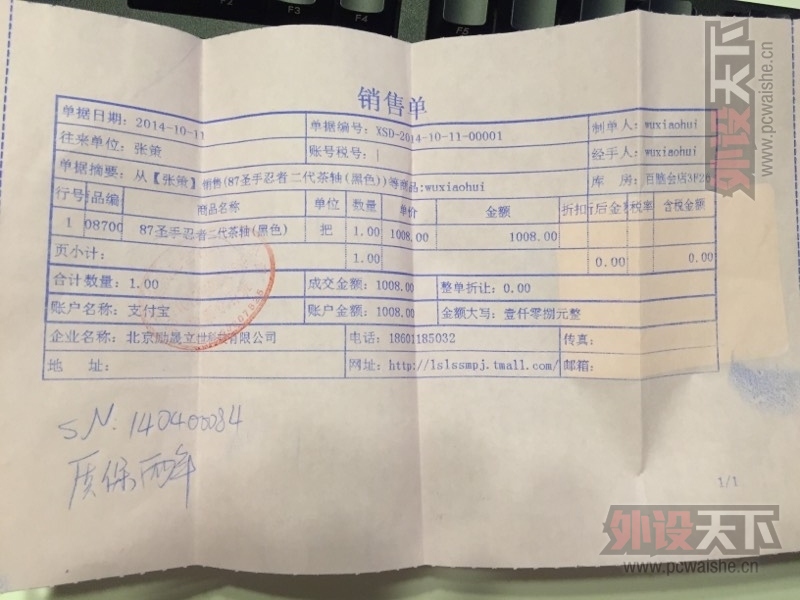 F2 F3 F4 F5
外设天下
www.pcwaishe.cn
销售单
单据日期: 2014-10-11 单据编号: XSD-2014-10-11-00001 制单人: wuxiaohui
往来单位: 张策 账号税号: 经手人: wuxiaohui
单据摘要: 从【张策】销售(87圣手忍者二代茶轴(黑色))等商品:wuxiaohui 库 房: 百脑会店3F26
行号 品编 商品名称 单位 数量 单价 金额 折扣 后金 税率 含税金额
1 08700 87圣手忍者二代茶轴(黑色) 把 1.00 1008.00 1008.00
页小计: 1.00 0.00 0.00
合计数量: 1.00 成交金额: 1008.00 整单折让: 0.00
账户名称: 支付宝 账户金额: 1008.00 金额大写: 壹仟零捌元整
企业名称: 北京励晟立世科技有限公司 电话: 18601185032 传真:
地 址: 网址: http://lslssmpj.tmall.com/ 邮箱:
SN. 140400084
质保两年
1/1
外设天下
www.pcwaishe.cn